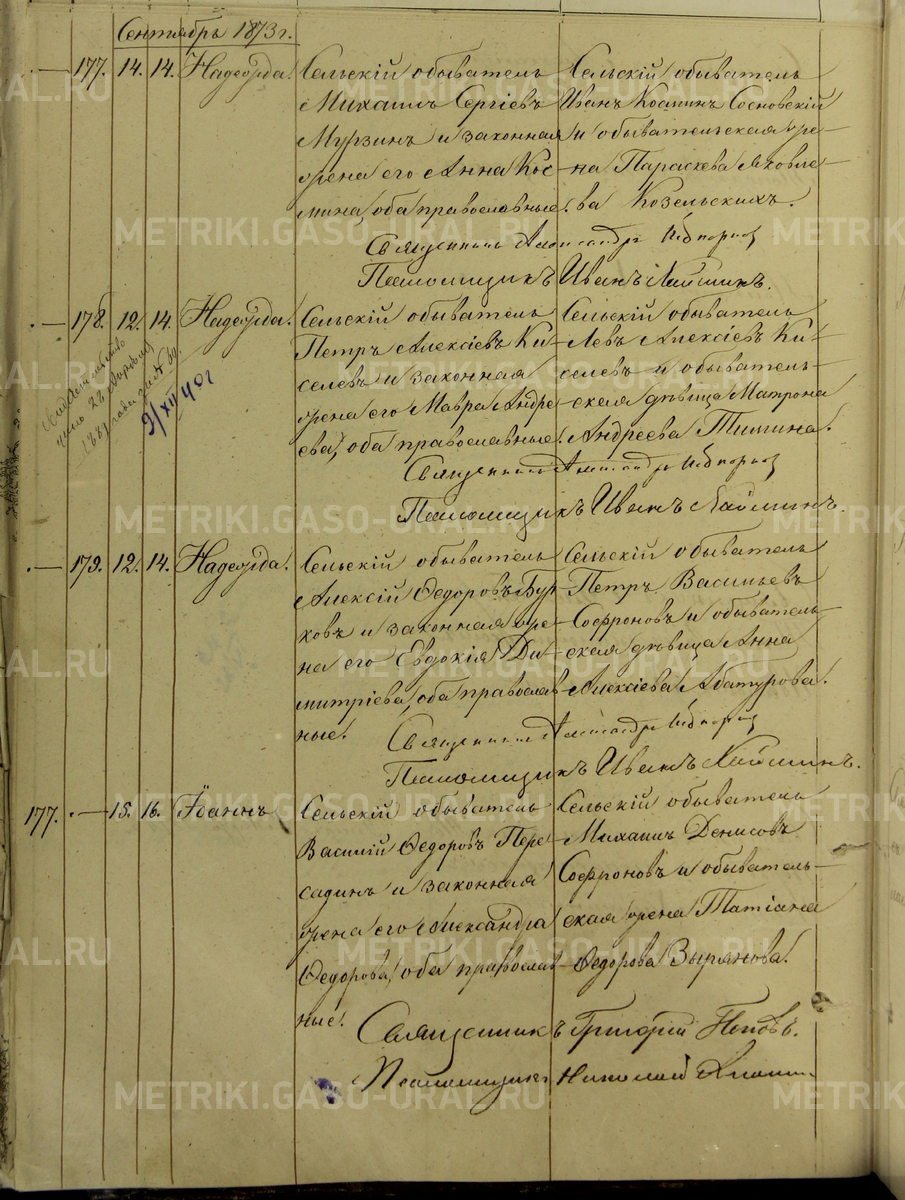 Сентябрь 1873 г.
177. 14. 14. Надежда.
Сельскій обыватель
Михаилъ Сергіевъ
Мурзинъ и законная
жена его Анна Кос-
мина, оба православные.
Сельскій обыватель
Иванъ Косминъ Сосновскій
и обывательская же-
на Параскева Яковле-
ва Козельскихъ.
Священникъ Александръ
Псаломщикъ Иванъ
178. 12. 14. Надежда.
9/XII 40 г
Сельскій обыватель
Петръ Алексіевъ Ки-
селевъ и законная
жена его Мавра Андре-
ева, оба православные.
Сельскій обыватель
Левъ Алексіевъ Ки-
селевъ и обыватель-
ская дѣвица Матрона
Андреева Тимина.
Священникъ Александръ
Псаломщикъ Иванъ
179. 12. 14. Надежда.
Сельскій обыватель
Алексій Ѳедоровъ Бур-
ковъ и законная же-
на его Евдокія Ди-
митріева, оба православ-
ные.
Сельскій обыватель
Петръ Васильевъ
Софроновъ и обыватель-
ская дѣвица Анна
Алексіева Абатурова.
Священникъ Александръ
Псаломщикъ Иванъ
177. 15. 16. Іоаннъ
Сельскій обыватель
Василій Ѳедоровъ Пере-
садинъ и законная
жена его Александра
Ѳедорова, оба православ-
ные.
Сельскій обыватель
Михаилъ Денисовъ
Софроновъ и обыватель-
ская жена Татіана
Ѳедорова Зырянова.
Священникъ Григорій Поповъ.
Псаломщикъ Николай
METRIKI.GASO-URAL.RU